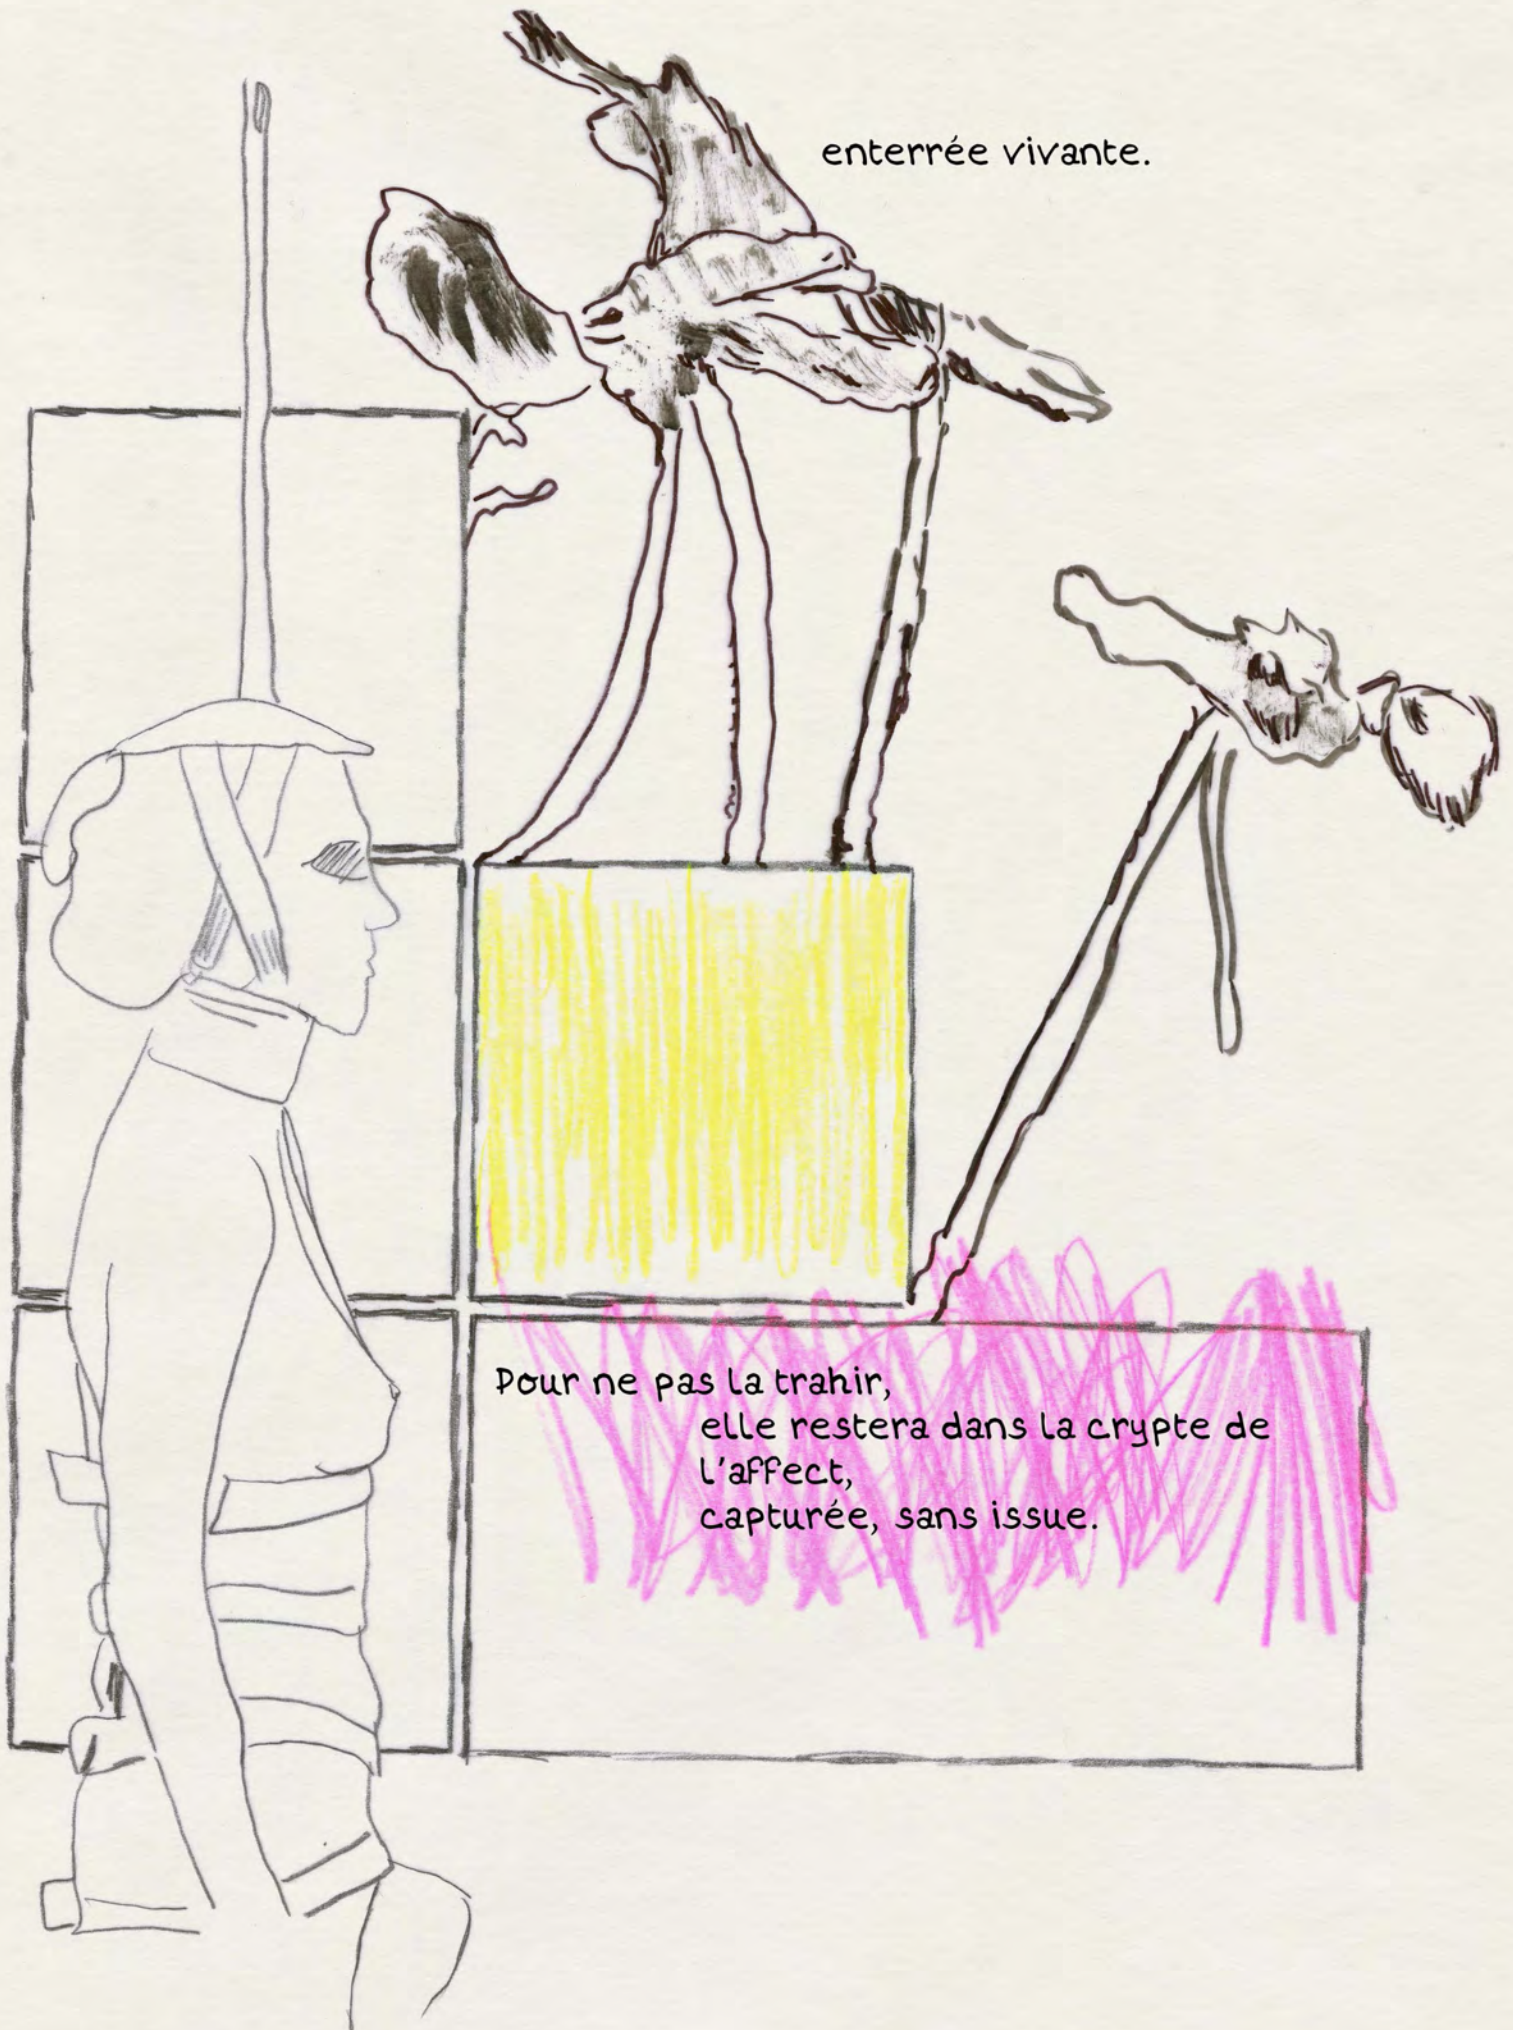 enterrée vivante.
Pour ne pas la trahir,
elle restera dans la crypte de
l'affect,
capturée, sans issue.